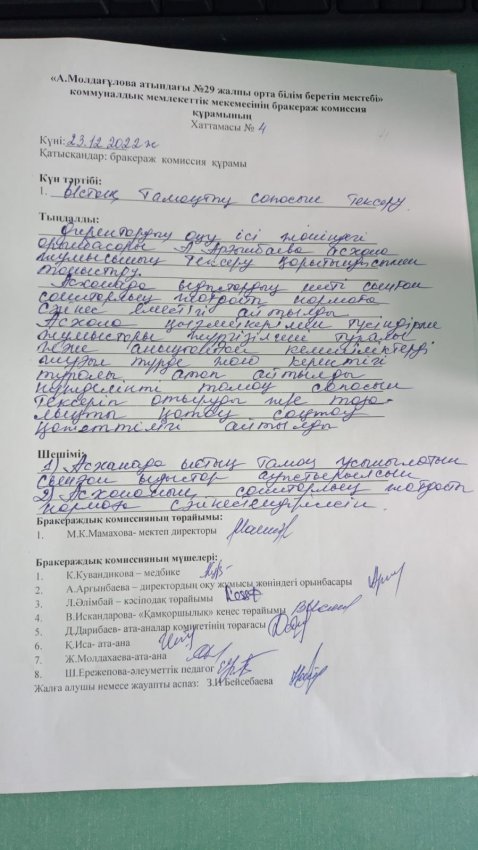 «А.Молдағұлова атындағы №29 жалпы орта білім беретін мектебі»
коммуналдық мемлекеттік мекемесінің бракераж комиссия
құрамының
Хаттамасы № 4
Күні: 23.12.2022 ж
Қатысқандар: бракераж комиссия құрамы
Күн тәртібі:
1. Ыстық тамақтың сапасын тексеру.
Тыңдалды:
Директордың оқу ісі жөніндегі
орынбасары А Арғынбаева асхана
жұмысының тексеру қорытындысымен
таныстыру.
Асханада ыдыстардың шеті сынған
санитарлық талапты нормаға
сәйкес еместігі айтылды
Асхана қызметкерлерімен түсіндірме
жұмыстары жүргізілгені туралы
және анықталған кемшіліктерді
жою керектігі
туралы атап айтылды
тамақ сапасын
тексеріп отыруды және таза-
лықты қатаң сақтау
қажеттілігі айтылды
Шешімі:
1) Асханада ыстық тамақ ұсынылатын
сынған ыдыстар ауыстырылсын
2) Асхананың санитарлық талапты
нормаға сәйкестендірілсін.
Бракераждық комиссияның төрайымы:
1. М.К.Мамахова- мектеп директоры
Бракераждық комиссияның мүшелері:
1. К.Кувандикова – медбике
2. А.Арғынбаева – директордың оқу жұмысы жөніндегі орынбасары
3. Л.Әлімбай – кәсіподак төрайымы
4. В.Искандарова- «Қамқоршылық» кеңес төрайымы
5. Д.Дарибаев- ата-аналар комитетінің төрағасы
6. Қ.Иса- ата-ана
7. Ж.Молдахаева-ата-ана
8. Ш.Ережепова-әлеуметтік педагог
Жалға алушы немесе жауапты аспаз: З.И Бейсебаева